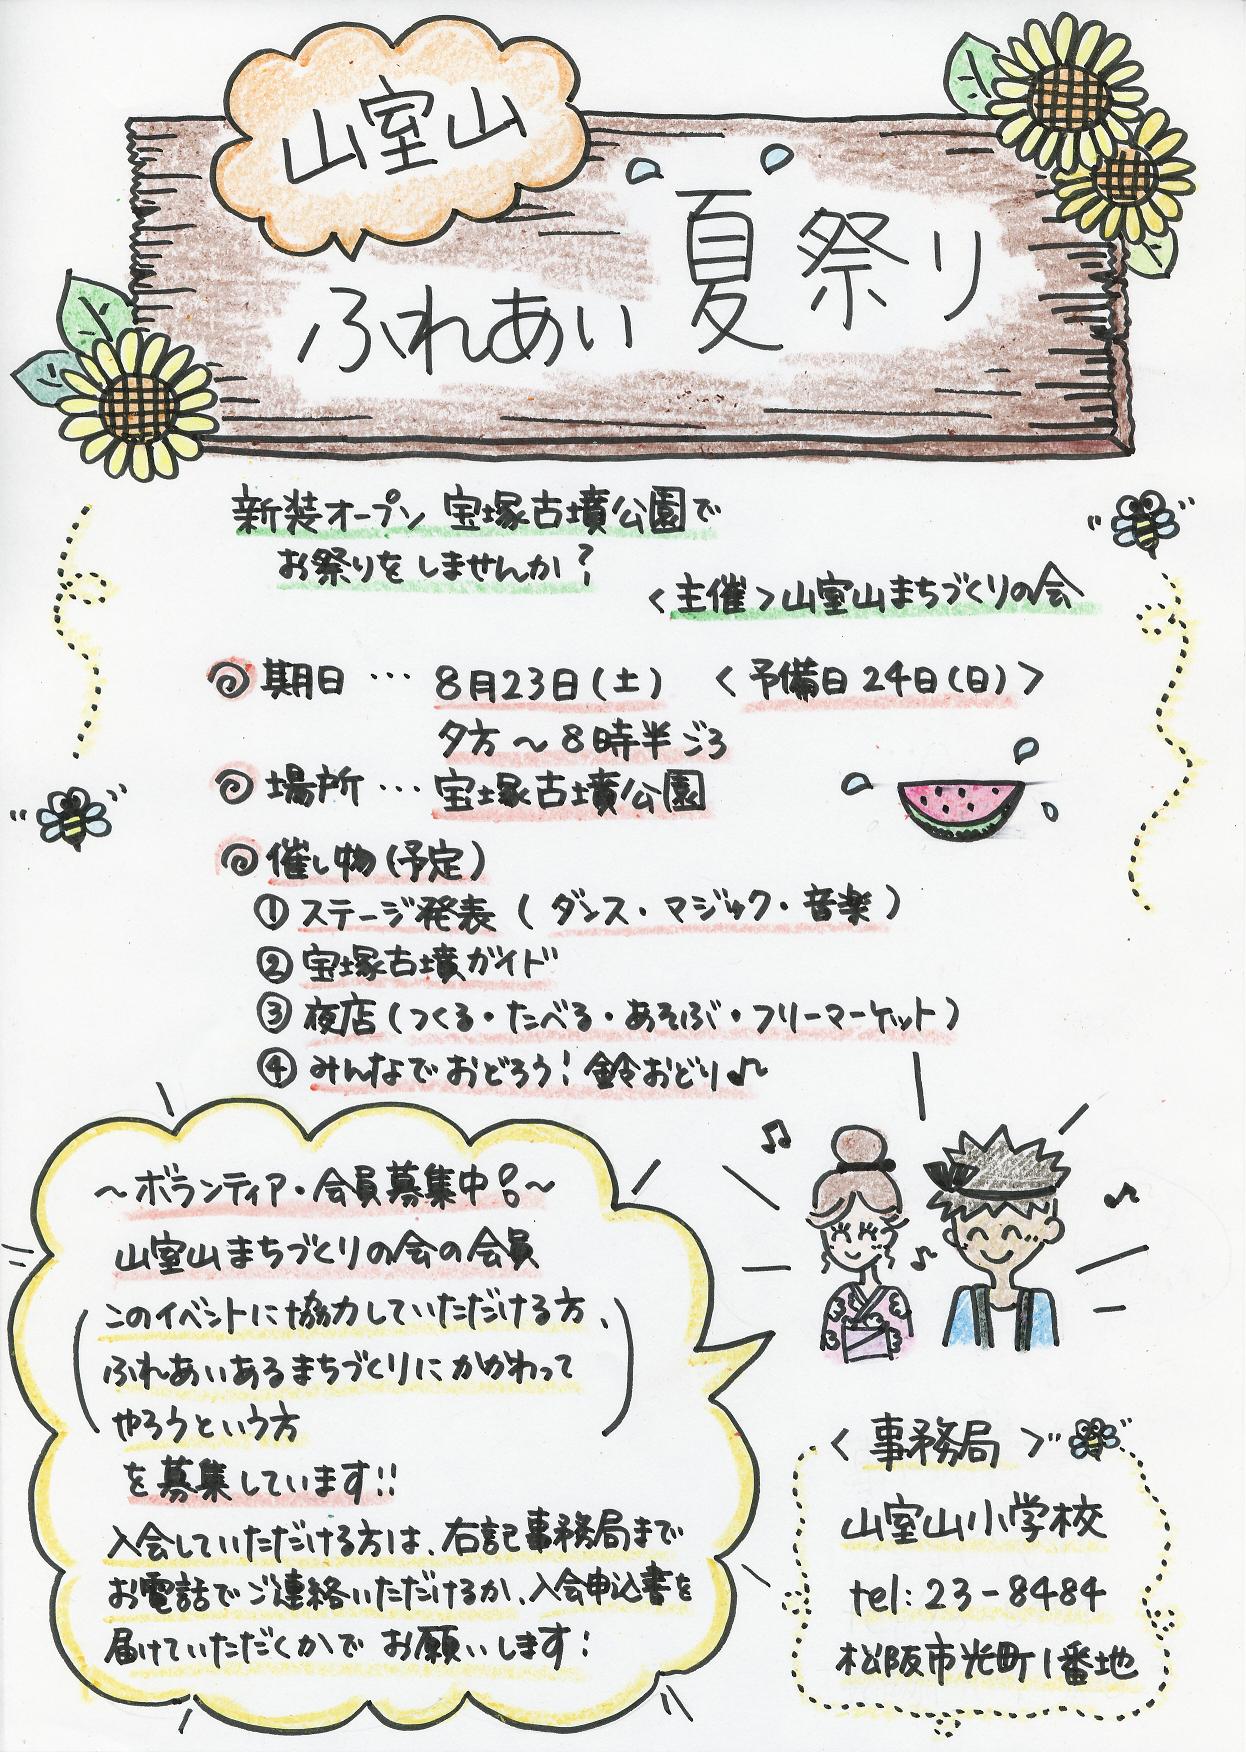 山室山
ふれあい夏祭り
新装オープン 宝塚古墳公園で
お祭りをしませんか？
＜主催＞山室山まちづくりの会
期日 … 8月23日(土) ＜予備日 24日(日)＞
夕方～8時半ごろ
場所 … 宝塚古墳公園
催し物(予定)
① ステージ発表 (ダンス・マジック・音楽)
② 宝塚古墳ガイド
③ 夜店(つくる・たべる・あそぶ・フリーマーケット)
④ みんなでおどろう！鈴おどり♪
～ボランティア・会員募集中！～
山室山まちづくりの会の会員
(このイベントに協力していただける方、
ふれあいあるまちづくりにかかわって
やろうという方)
を募集しています!!
入会していただける方は、右記事務局まで
お電話でご連絡いただけるか、入会申込書を
届けていただくかで お願いします！
＜事務局＞
山室山小学校
tel:23-8484
松阪市光町1番地